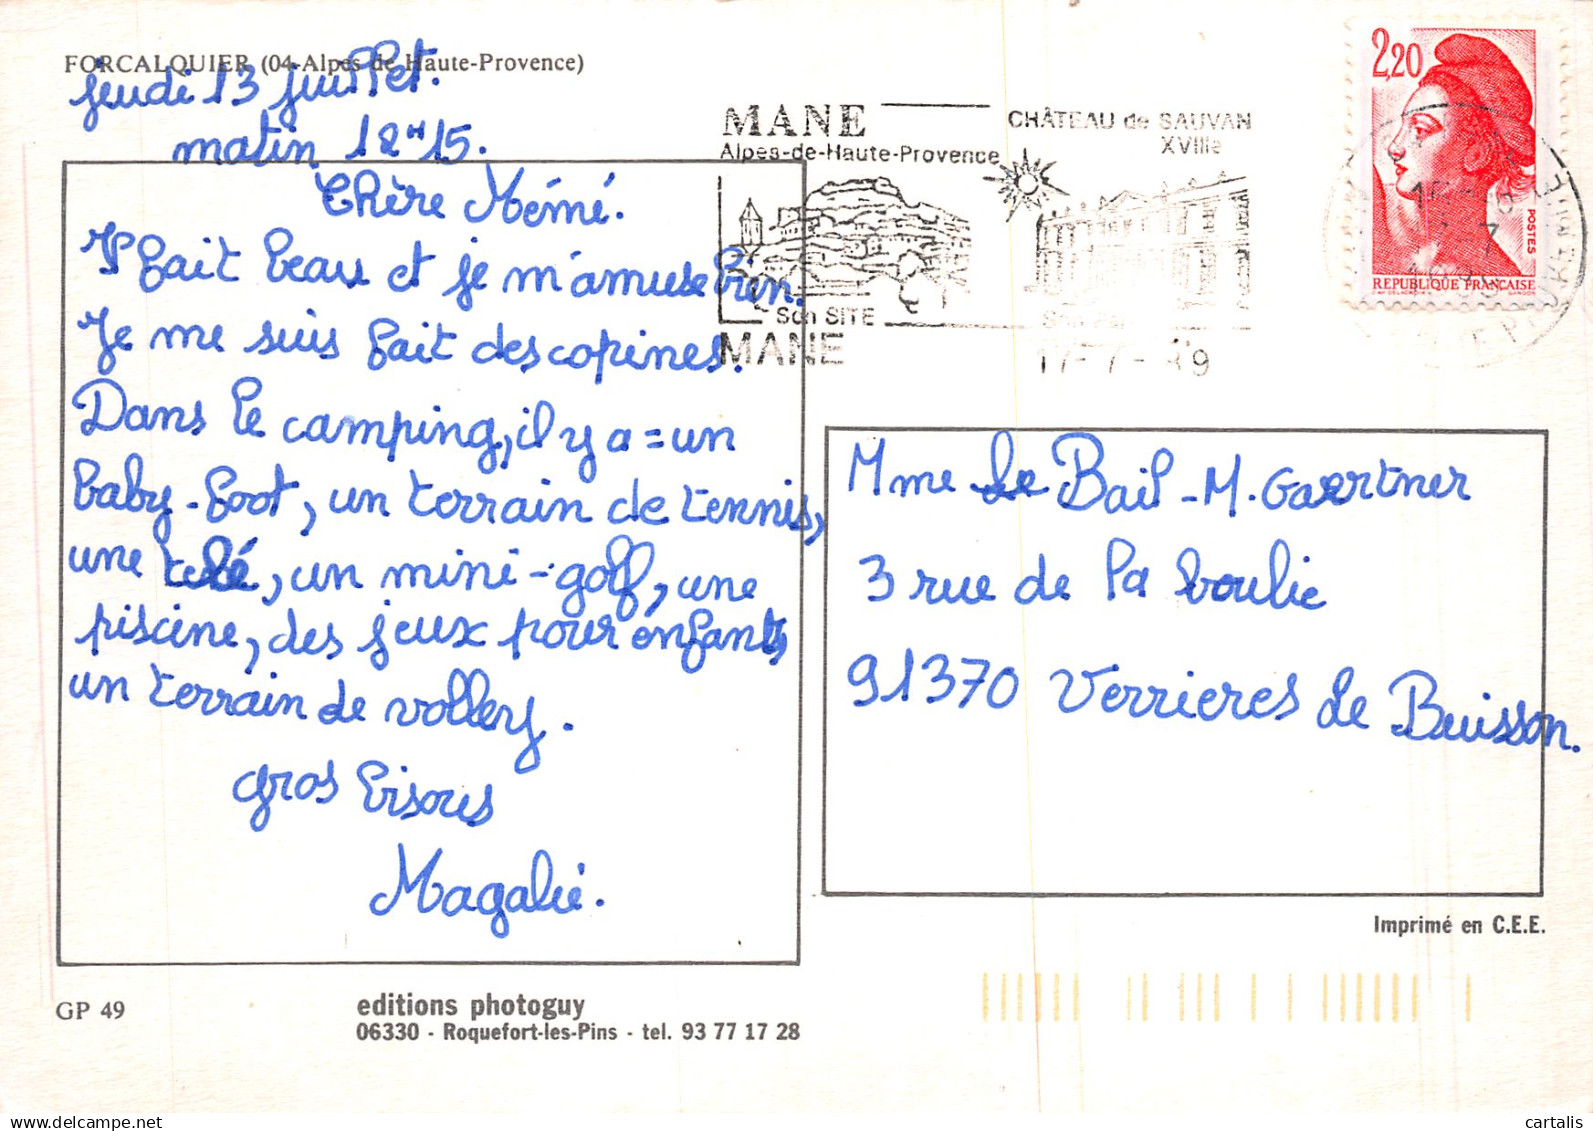 FORCALQUIER (04-Alpes de Haute-Provence)
jeudi 13 juillet.
matin 12H15.
Chère Mémé.
Il fait beau et je m'amuse bien.
Je me suis fait des copines.
Dans le camping, il y a = un
baby-foot, un terrain de tennis,
une télé, un mini-golf, une
piscine, des jeux pour enfants,
un terrain de volley.
gros bisous
Magalie.
GP 49
editions photoguy
06330 - Roquefort-les-Pins - tel. 93 77 17 28
MANE
Alpes-de-Haute-Provence
CHÂTEAU de SAUVAN
XVIIIe
Son SITE
MANE
17-7-89
2,20
POSTES
REPUBLIQUE FRANCAISE
Mme Le Bail - M. Gaertner
3 rue de la boulie
91370 Verrieres Le Buisson.
Imprimé en C.E.E.
cartalis